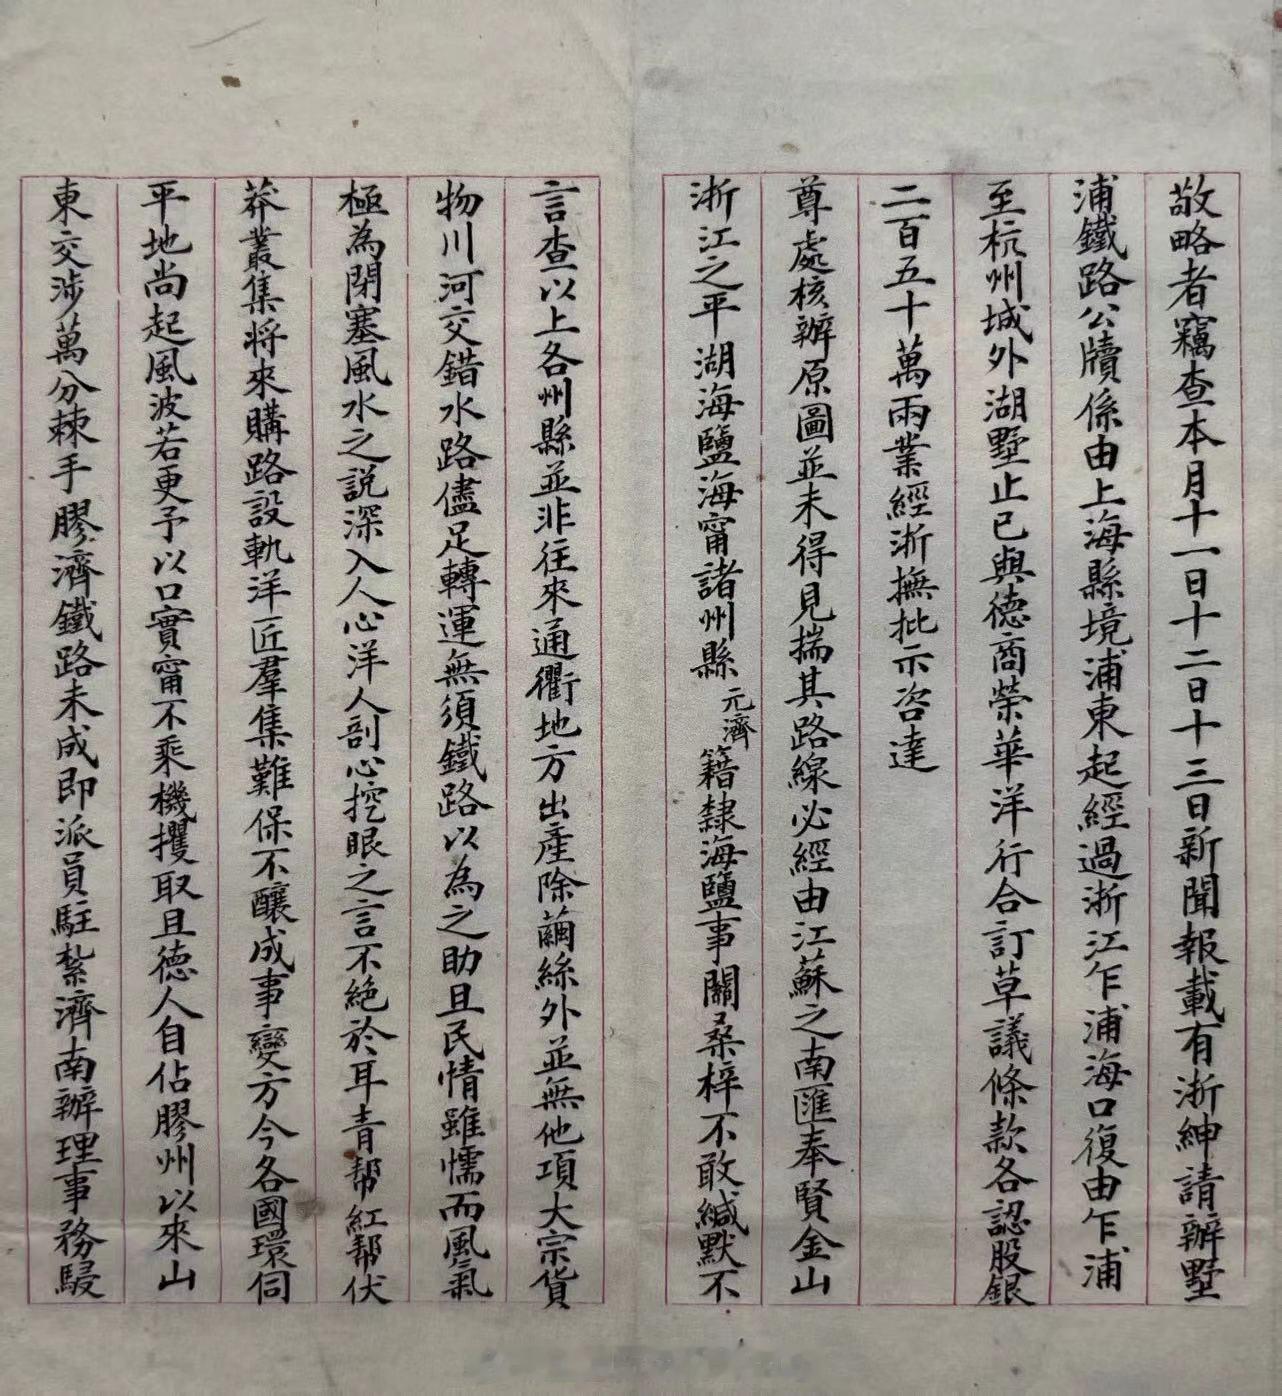 敬略者竊查本月十一日十二日十三日新聞報載有浙紳請辦墅
浦鐵路公牘係由上海縣境浦東起經過浙江乍浦海口復由乍浦
至杭州城外湖墅止已與德商榮華洋行合訂草議條款各認股銀
二百五十萬兩業經浙撫批示咨達
尊處核辦原圖並未得見揣其路線必經由江蘇之南匯奉賢金山
浙江之平湖海鹽海甯諸州縣元濟籍隸海鹽事關桑梓不敢緘默不
言查以上各州縣並非往來通衢地方出產除繭絲外並無他項大宗貨
物川河交錯水路儘足轉運無須鐵路以為之助且民情雖懦而風氣
極為閉塞風水之說深入人心洋人剖心挖眼之言不絕於耳青幫紅幫伏
莽叢集將來購路設軌洋匠羣集難保不釀成事變方今各國環伺
平地尚起風波若更予以口實甯不乘機攫取且德人自佔膠州以來山
東交涉萬分棘手膠濟鐵路未成即派員駐紮濟南辦理事務駸